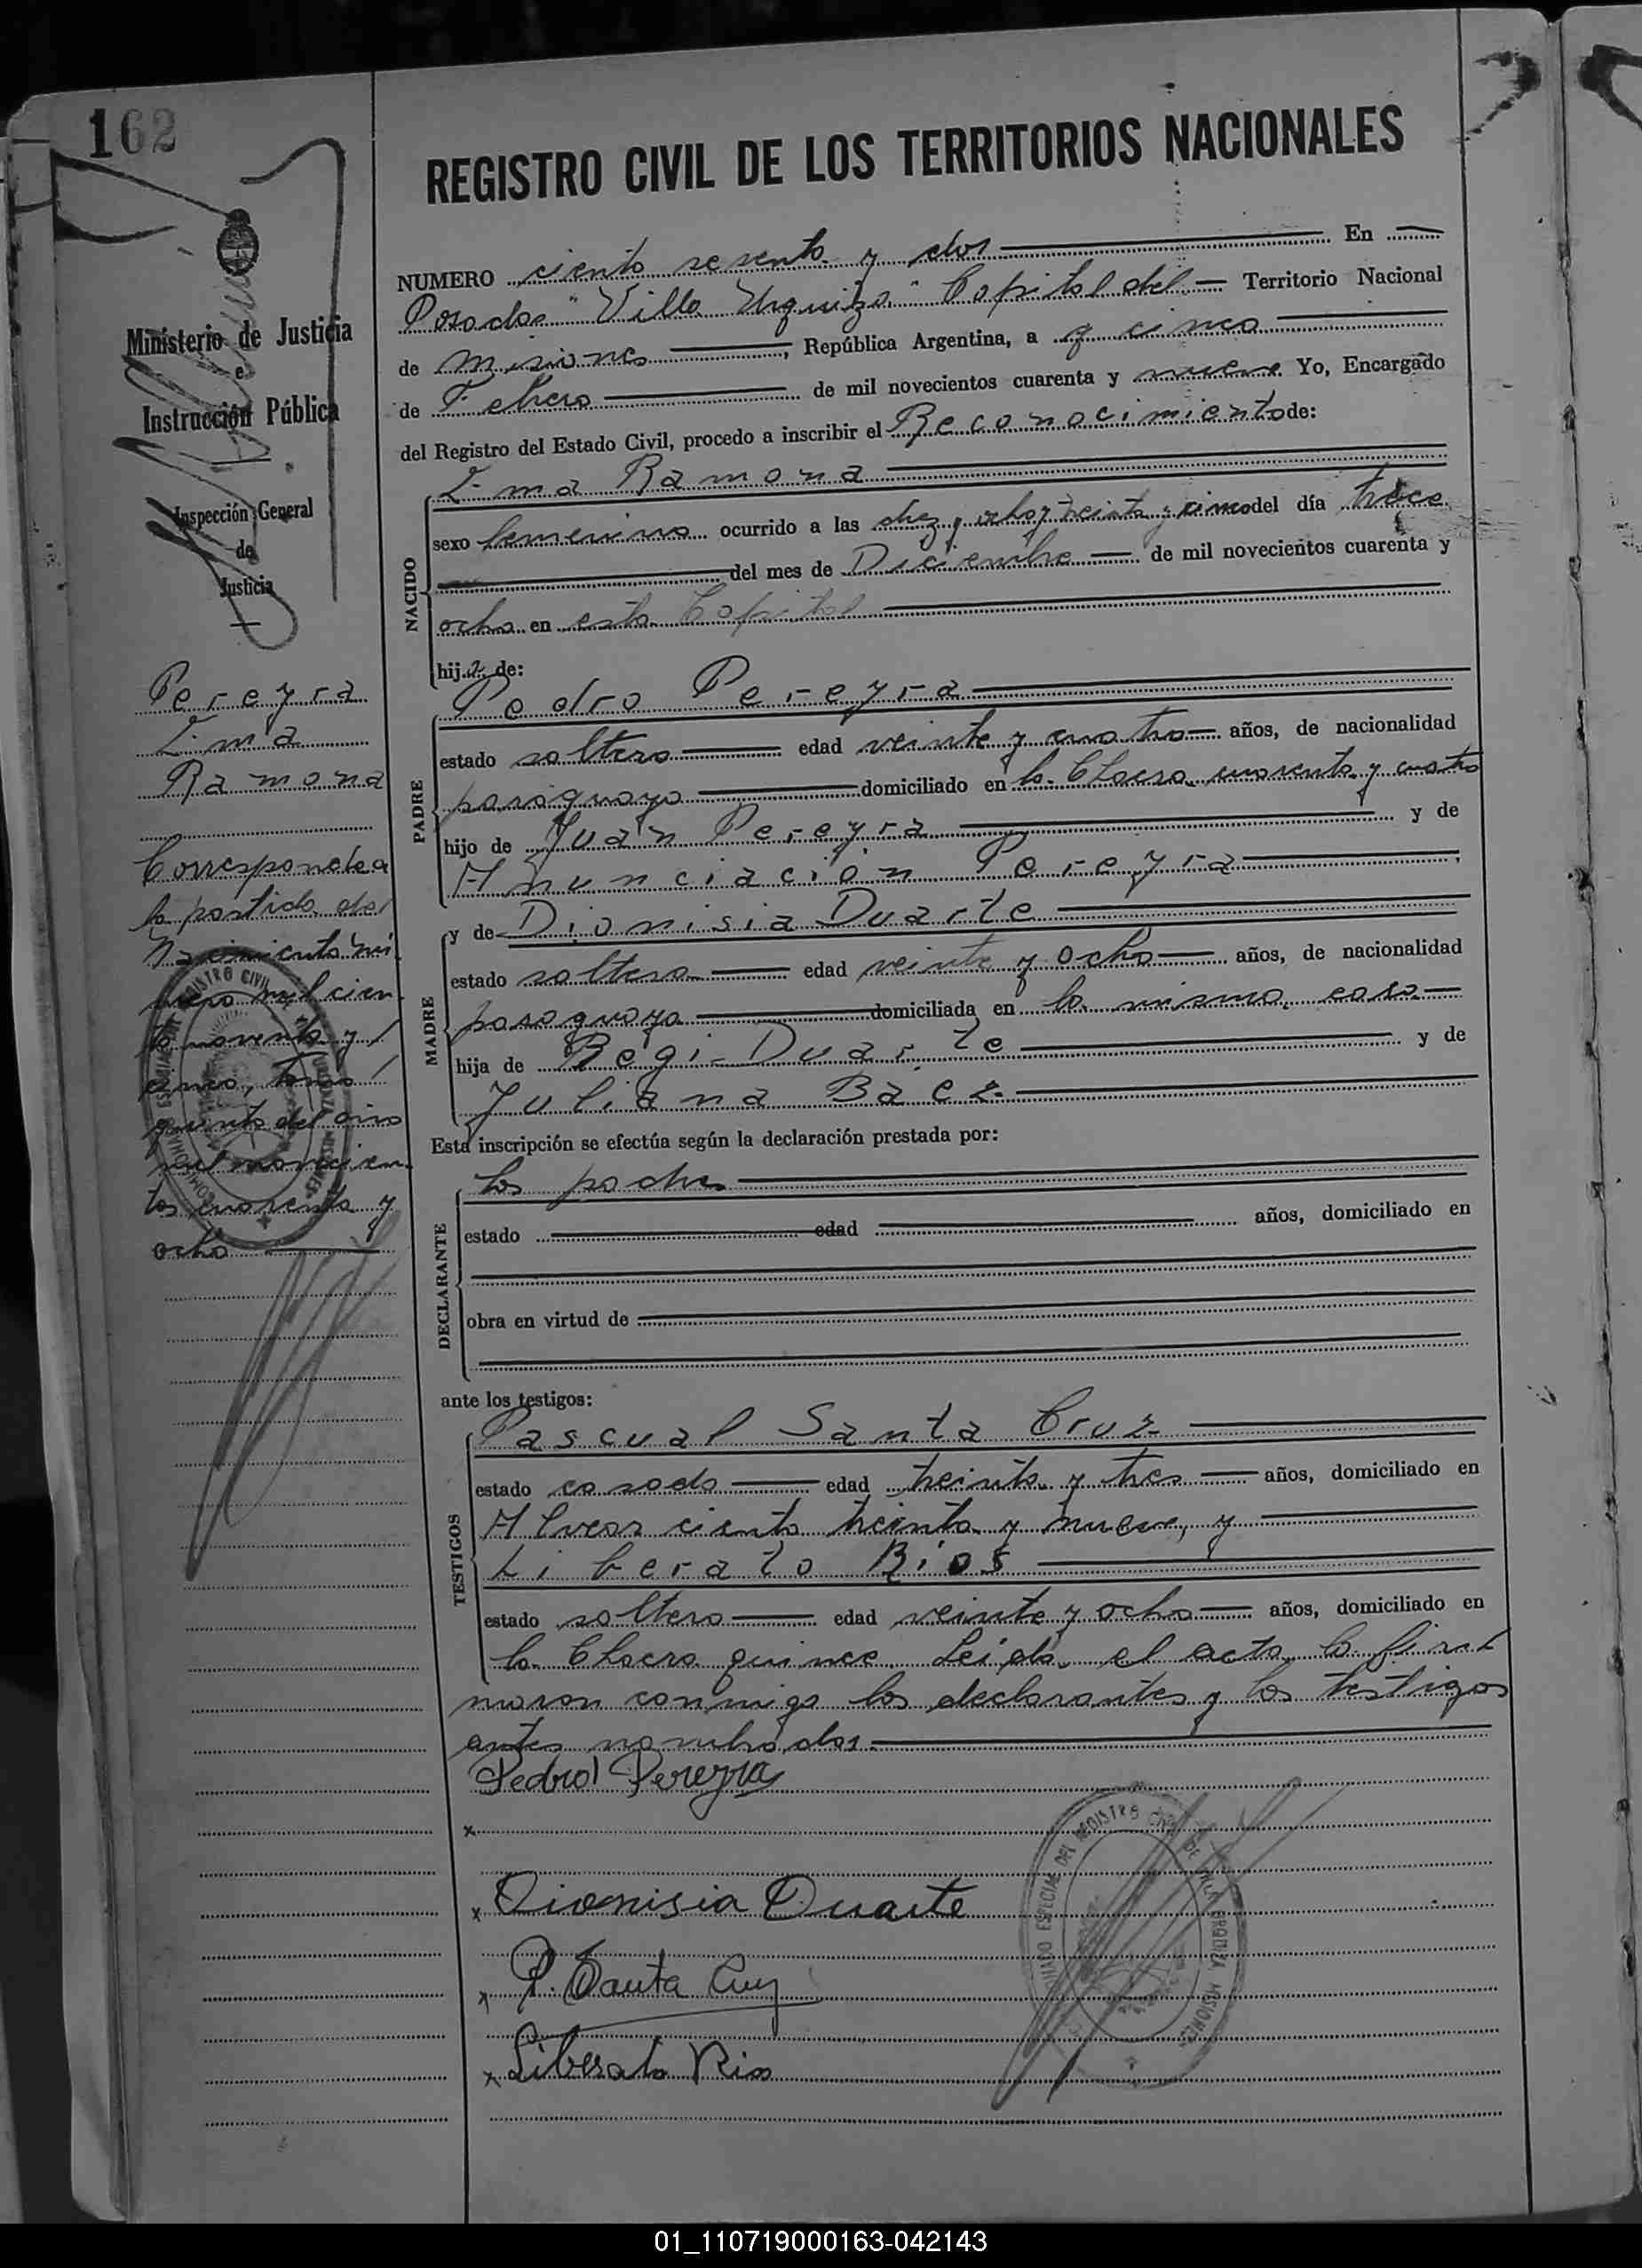 162
REGISTRO CIVIL DE LOS TERRITORIOS NACIONALES
Ministerio de Justicia
e
Instrucción Pública
Inspección General
de
Justicia
Pereyra
Ema
Ramona
Corresponde a
la partida de
Nacimiento nú-
mero mil cien-
to noventa y
cinco, tomo
quinto del año
mil novecien-
tos cuarenta y
ocho
NUMERO ciento sesenta y dos En
Posadas "Villa Urquiza" Capital del Territorio Nacional
de Misiones, República Argentina, a cinco
de Febrero de mil novecientos cuarenta y nueve Yo, Encargado
del Registro del Estado Civil, procedo a inscribir el Reconocimiento de:
NACIDO
Ema Ramona
sexo femenino ocurrido a las diez y ocho y treinta y cinco del día trece
del mes de Diciembre de mil novecientos cuarenta y
ocho en esta Capital
hija de:
PADRE
Pedro Pereyra
estado soltero edad veinte y cuatro años, de nacionalidad
paraguaya domiciliado en la Chacra cuarenta y cuatro
hijo de Juan Pereyra y de
Anunciación Pereyra
MADRE
y de Dionisia Duarte
estado soltera edad veinte y ocho años, de nacionalidad
paraguaya domiciliada en la misma casa
hija de Regi Duarte y de
Juliana Baez
Esta inscripción se efectúa según la declaración prestada por:
DECLARANTE
los padres
estado edad años, domiciliado en
obra en virtud de
ante los testigos:
TESTIGOS
Pascual Santa Cruz
estado casado edad treinta y tres años, domiciliado en
Alvear ciento treinta y nueve, y
Liberato Rios
estado soltero edad veinte y ocho años, domiciliado en
la Chacra quince. Leída el acta la fir
maron conmigo los declarantes y los testigos
antes nombrados.
Pedro Pereyra
x
x Dionisia Duarte
x P. Santa Cruz
x Liberato Rios
01_110719000163-042143